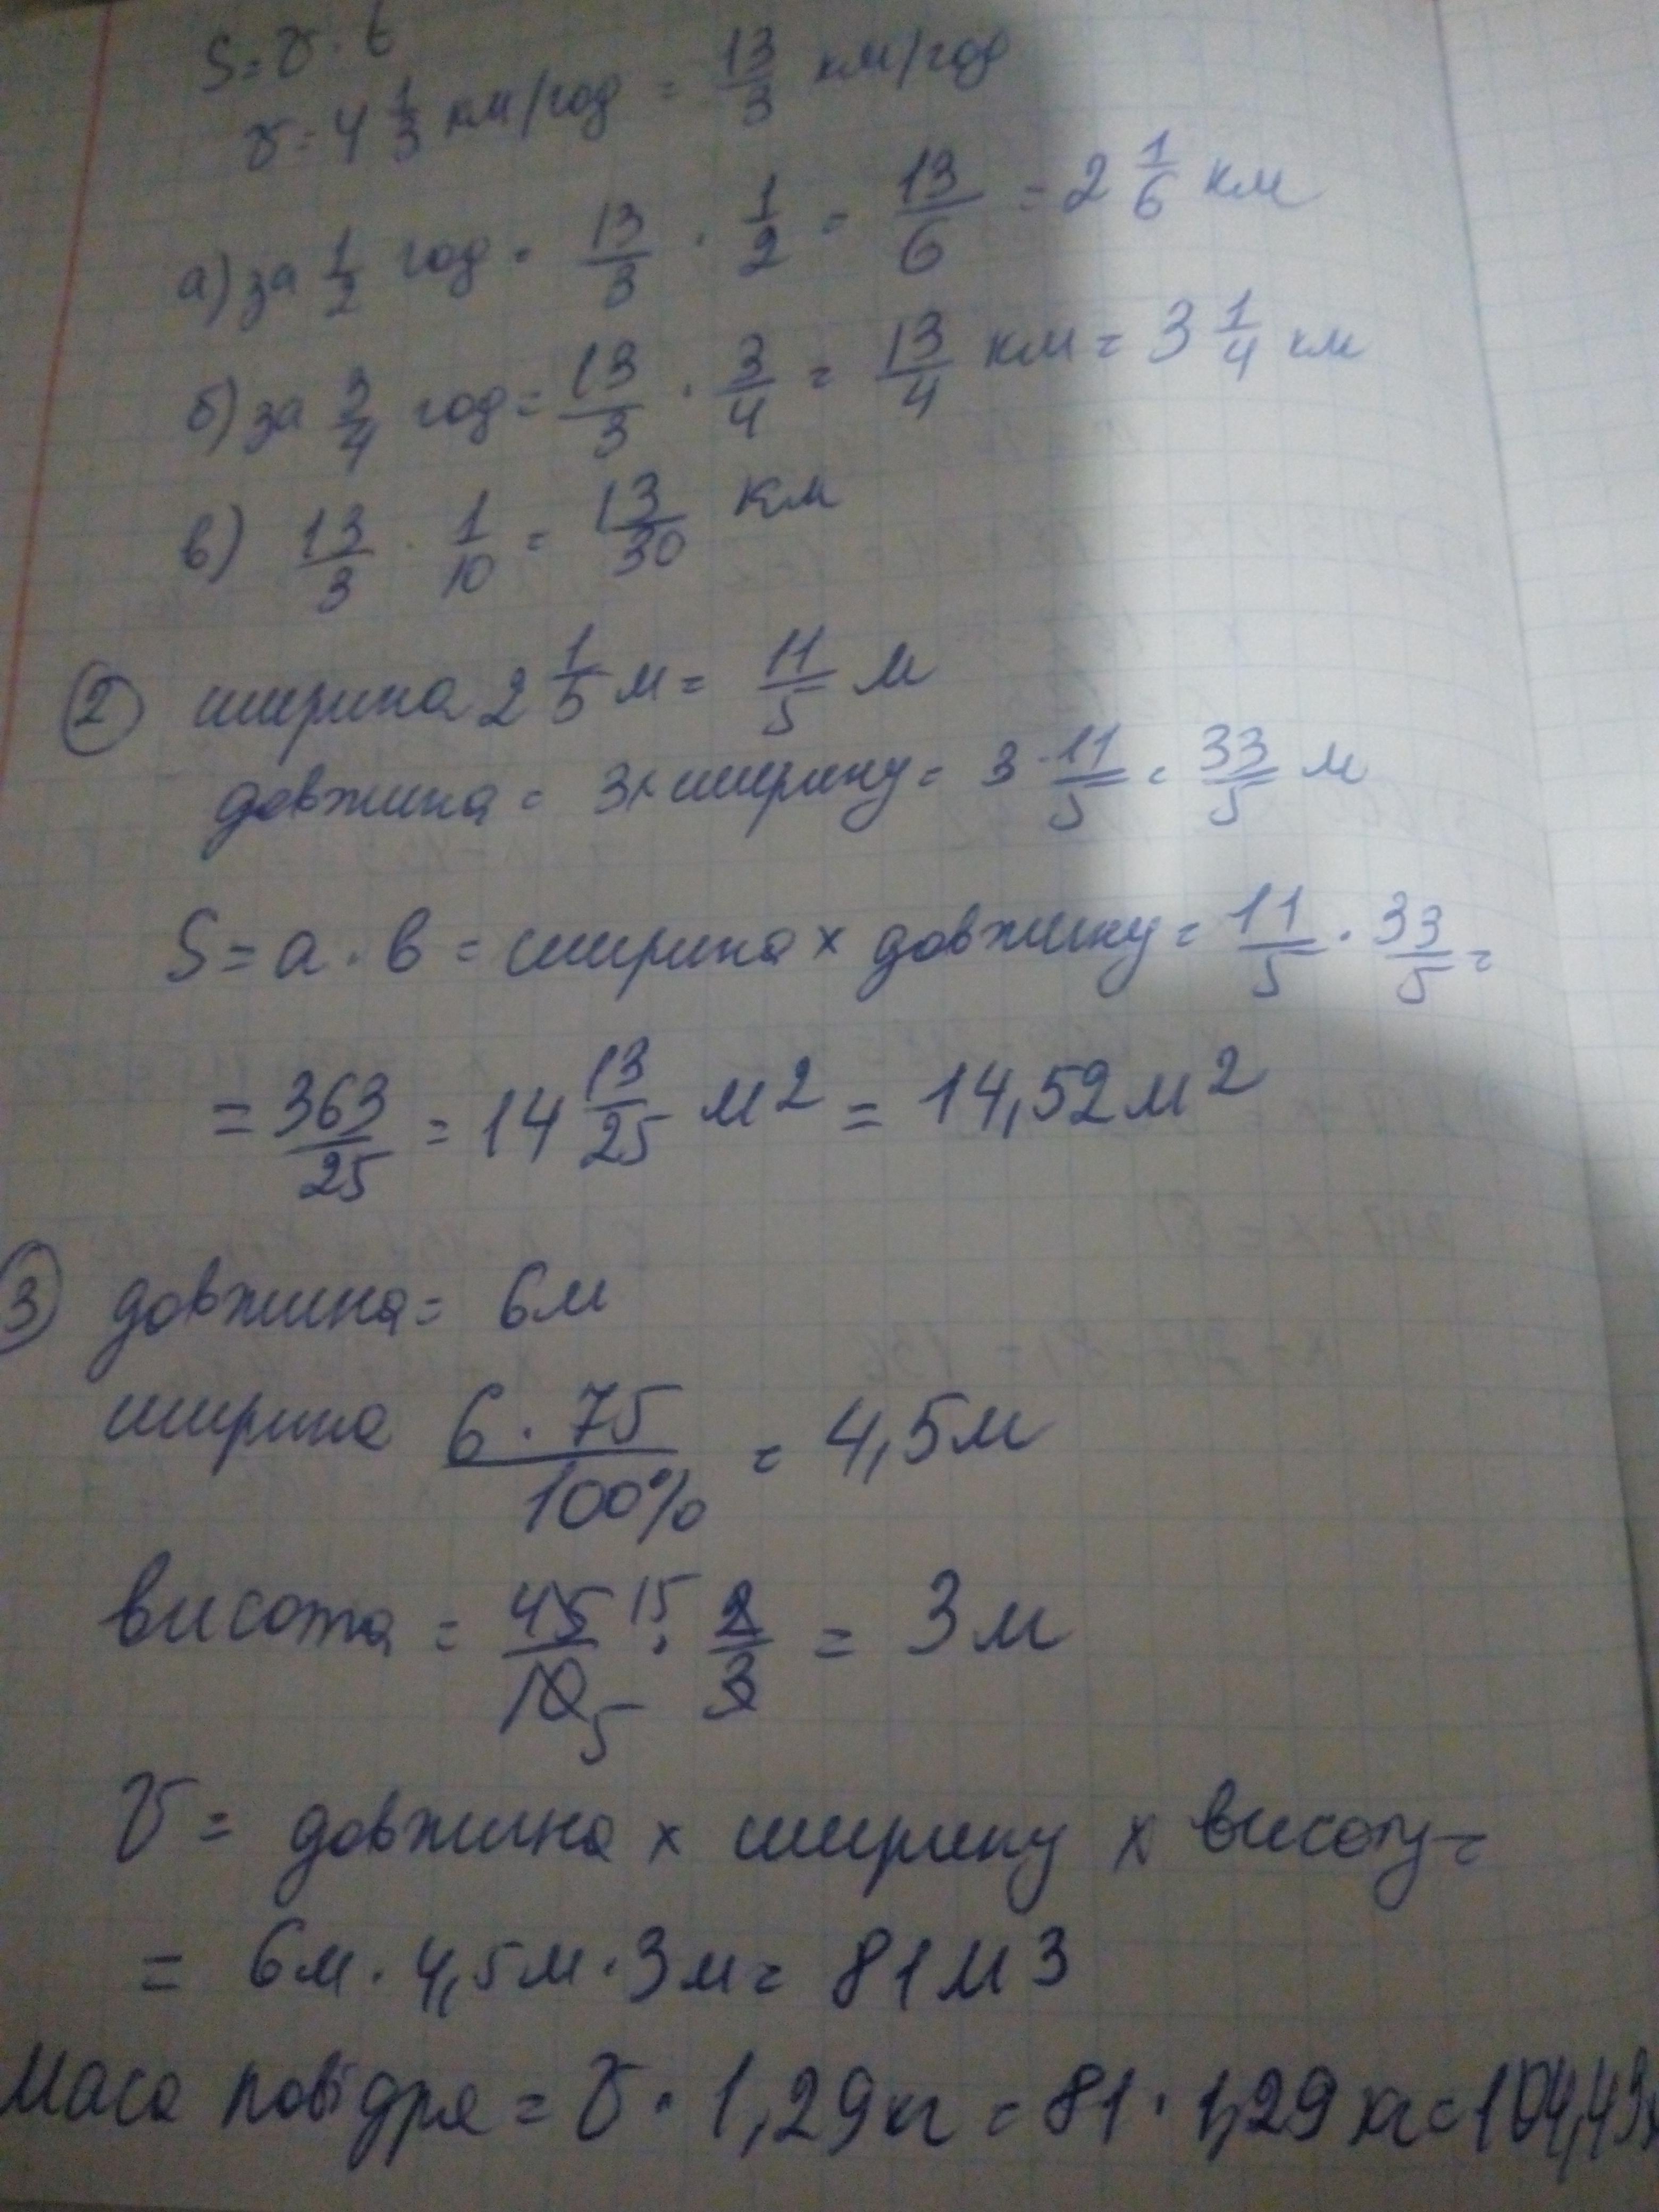 S = v · t
v = 4 1/3 км/год = 13/3 км/год
а) за 1/2 год = 13/3 · 1/2 = 13/6 = 2 1/6 км
б) за 3/4 год = 13/3 · 3/4 = 13/4 км = 3 1/4 км
в) 13/3 · 1/10 = 13/30 км
2 ширина 2 1/5 м = 11/5 м
довжина = 3 × ширину = 3 · 11/5 = 33/5 м
S = a · b = ширина × довжину = 11/5 · 33/5 =
= 363/25 = 14 13/25 м2 = 14,52 м2
3 довжина = 6м
ширина 6 · 75/100% = 4,5м
висота = 45/10 15 5 · 2/3 = 3м
V = довжина × ширину × висоту =
= 6м · 4,5м · 3м = 81м3
Маса повідря = V · 1,29кг = 81 · 1,29 кг = 104,49